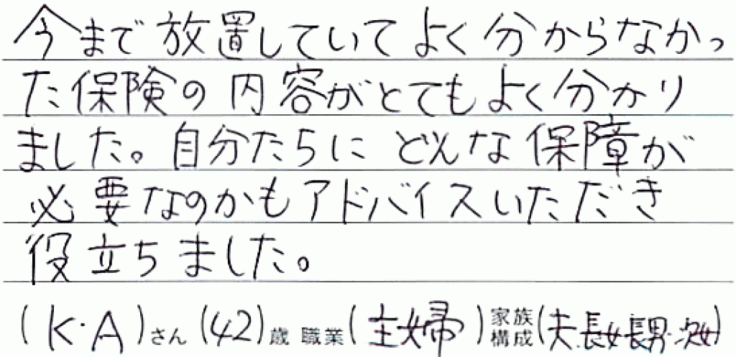 今まで放置していてよく分からなかっ
た保険の内容がとてもよく分かり
ました。自分たちにどんな保障が
必要なのかもアドバイスいただき
役立ちました。
(K・A)さん(42)歳 職業(主婦)家族構成(夫、長女、長男、次女)